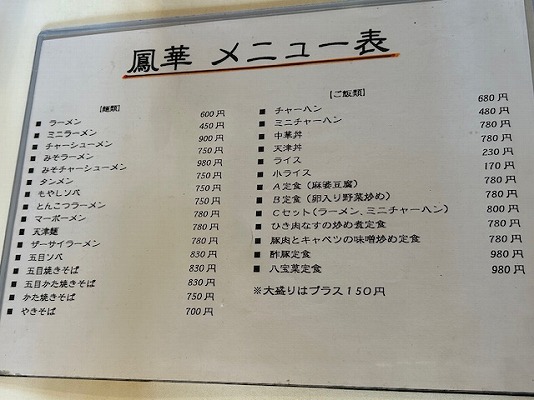 鳳華 メニュー表
[麺類]
■ ラーメン 600円
■ ミニラーメン 450円
■ チャーシューメン 900円
■ みそラーメン 750円
■ みそチャーシューメン 980円
■ タンメン 750円
■ もやしソバ 750円
■ とんこつラーメン 750円
■ マーボーメン 780円
■ 天津麺 780円
■ ザーサイラーメン 780円
■ 五目ソバ 830円
■ 五目焼きそば 830円
■ 五目かた焼きそば 830円
■ かた焼きそば 750円
■ やきそば 700円
[ご飯類]
■ チャーハン 680円
■ ミニチャーハン 480円
■ 中華丼 780円
■ 天津丼 780円
■ ライス 230円
■ 小ライス 170円
■ A定食(麻婆豆腐) 780円
■ B定食(卵入り野菜炒め) 780円
■ Cセット(ラーメン、ミニチャーハン) 800円
■ ひき肉なすの炒め煮定食 780円
■ 豚肉とキャベツの味噌炒め定食 780円
■ 酢豚定食 980円
■ 八宝菜定食 980円
※大盛りはプラス150円